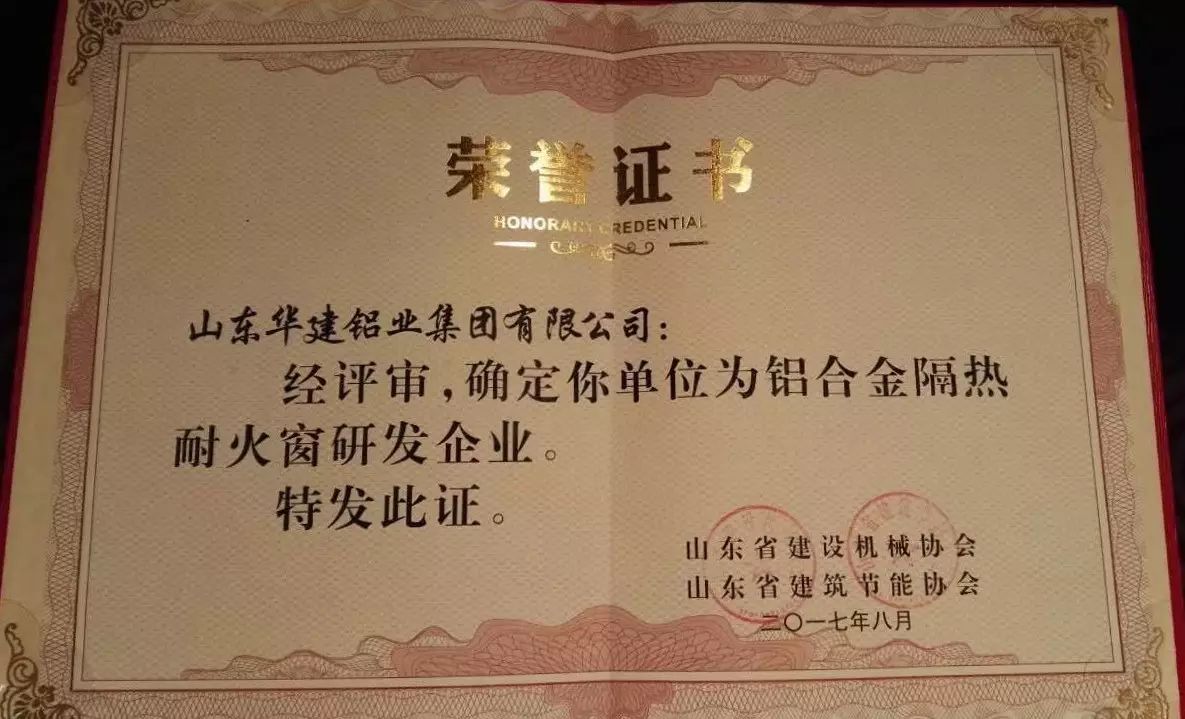 荣誉证书
HONORARY CREDENTIAL
山东华建铝业集团有限公司：
经评审，确定你单位为铝合金隔热
耐火窗研发企业。
特发此证。
山东省建设机械协会
山东省建筑节能协会
二〇一七年八月